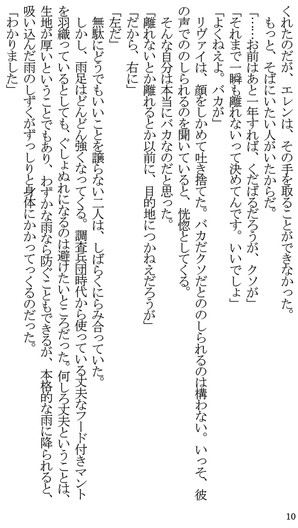 くれたのだが、エレンは、その手を取ることができなかった。
もっと、そばにいたい人がいたからだ。
「……お前はあと一年すれば、くたばるだろうが、クソが」
「それまで一瞬も離れないって決めてんです。いいでしょ」
「よくねえよ。バカが」
リヴァイは、顔をしかめて吐き捨てた。バカだクソだとののしられるのは構わない。いっそ、彼
の声でののしられるのを聞いていると、恍惚としてくる。
そんな自分は本当にバカなのだと思った。
「離れないとか離れるとか以前に、目的地につかねえだろうが」
「だから、右に」
「左だ」
無駄にどうでもいいことを譲らない二人は、しばらくにらみ合っていた。
しかし、雨足はどんどん強くなってくる。調査兵団時代から使っている丈夫なフード付きマント
を羽織っているとしても、ぐしょぬれになるのは避けたいところだった。何しろ丈夫ということは、
生地が厚いということでもあり、わずかな雨なら防ぐこともできるが、本格的な雨に降られると、
吸い込んだ雨のしずくがずっしりと身体にかかってくるのだった。
「わかりました」
10